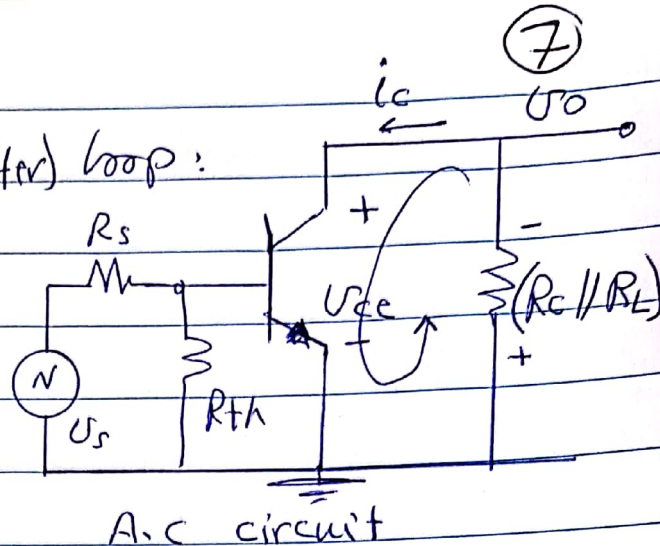 7
ic
vo
ter) loop:
Rs
+
-
vce
(Rc // RL)
-
+
Rth
vs
A.C circuit